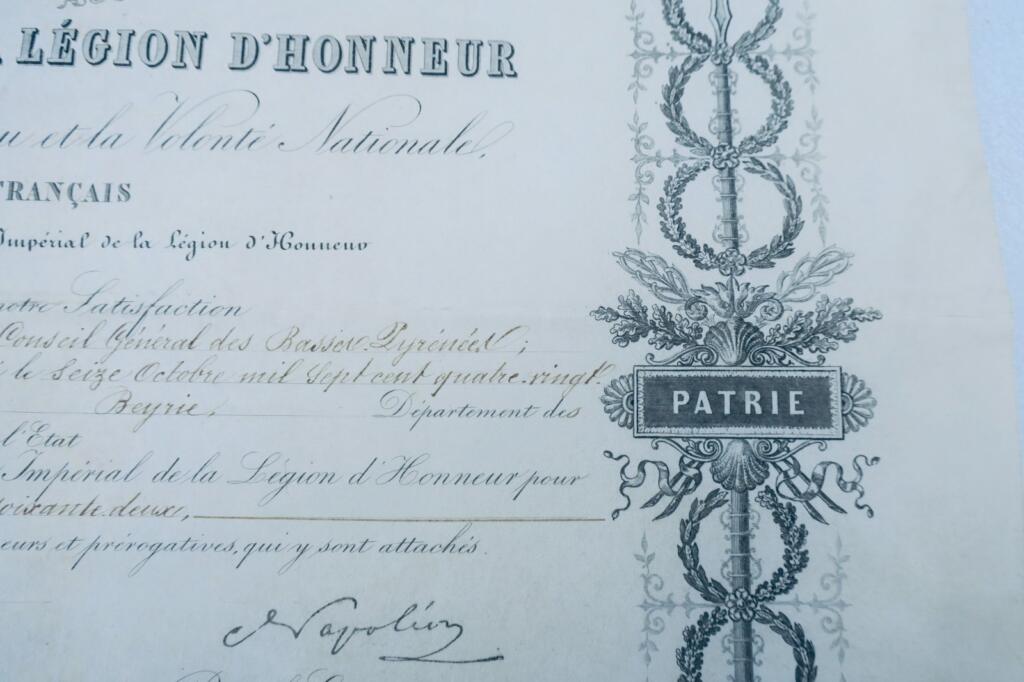 LÉGION D'HONNEUR
et la Volonté Nationale,
FRANÇAIS
Impérial de la Légion d'Honneur
notre Satisfaction
Conseil Général des Basses Pyrénées;
le Seize Octobre mil Sept cent quatre-vingt
Beyrie, Département des
l'Etat
Impérial de la Légion d'Honneur pour
soixante-deux,
eurs et prérogatives, qui y sont attachés.
Napoléon
PATRIE